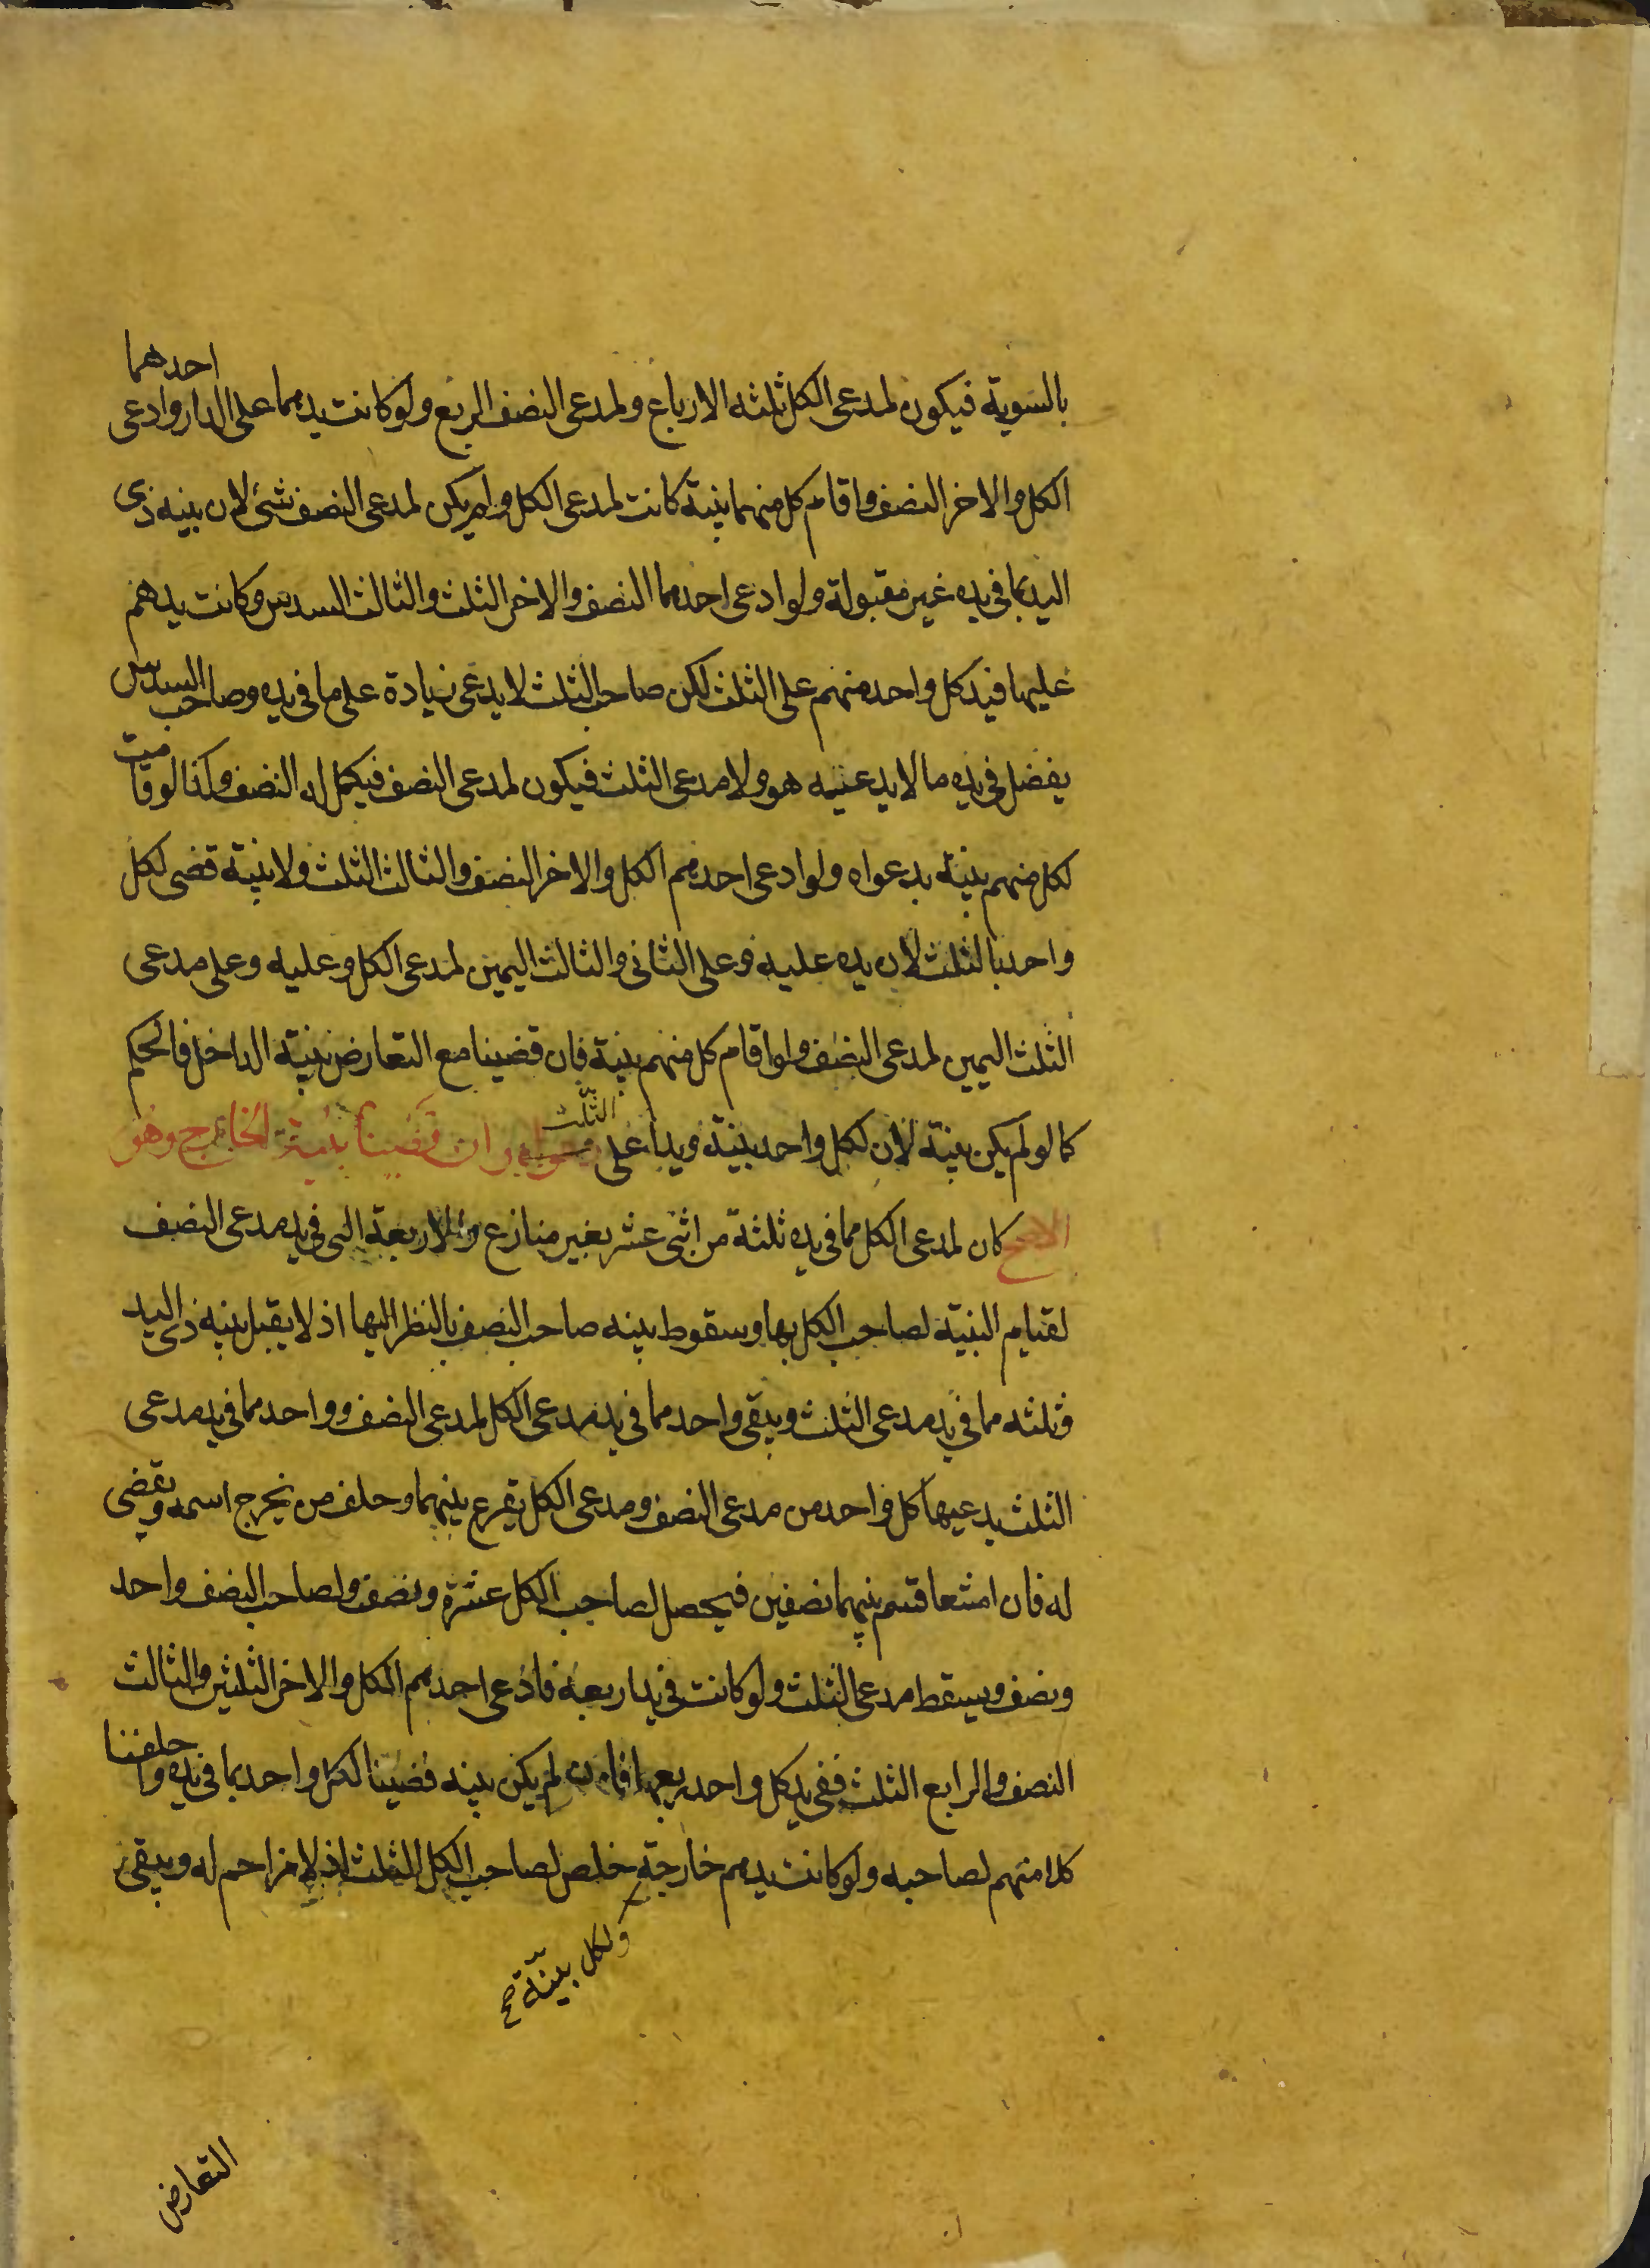 بالسوية فيكون لمدعى الكل ثلثه الارباع ولمدعى النصف الربع ولو كانت يدهما على الدار وادعى احدهما
الكل والاخر النصف واقام كل منهما بينة كانت لمدعى الكل ولم يكن لمدعى النصف شئ لان بينه ذى
اليد بما فى يده غير مقبولة ولو ادعى احدهما النصف والاخر الثلث والثالث السدس وكانت يدهم
عليها فيد كل واحد منهم على الثلث لكن صاحب الثلث لا يدعى زيادة على ما فى يده وصاحب السدس
يفضل فى يده ما لا يدعيه هو ولا مدعى الثلث فيكون لمدعى النصف فيكمل له النصف وكذا لو قامت
لكل منهم بينة بدعواه ولو ادعى احدهم الكل والاخر النصف والثالث الثلث ولا بينة قضى لكل
واحد بالثلث لان يده عليه وعلى الثانى والثالث اليمين لمدعى الكل وعليه وعلى مدعى
الثلث اليمين لمدعى النصف ولو اقام كل منهم بينة فان قضينا مع التعارض ببينة الداخل فالحكم
كما لو لم يكن بينة لان لكل واحد بينة ويدا على الثلث وان قضينا ببينة الخارج وهو
الاصح كان لمدعى الكل مما فى يده ثلثة من اثنى عشر بغير منازع والاربعة التى فى يد مدعى النصف
لقيام البنية لصاحب الكل بها وسقوط بينه صاحب النصف بالنظر اليها اذ لا يقبل بينه ذى اليد
وثلثه مما فى يد مدعى الثلث ويبقى واحد مما فى يد مدعى الكل لمدعى النصف وواحد مما فى يد مدعى
الثلث يدعيها كل واحد من مدعى النصف ومدعى الكل يقرع بينهما وحلف من يخرج اسمه ويقضى
له فان امتنعا قسم بينهما نصفين فيحصل لصاحب الكل عشرة ونصف ولصاحب النصف واحد
ونصف ويسقط مدعى الثلث ولو كانت فى يد اربعه فادعى احدهم الكل والاخر الثلثين والثالث
النصف والرابع الثلث ففى يد كل واحد ربعها فان لم يكن بينه قضينا لكل واحد بما فى يده واحلفنا
كلا منهم لصاحبه ولو كانت يدهم خارجة خلص لصاحب الكل الثلث اذ لا مزاحم له ويبقى
ولكل بينّة صح
التعارض